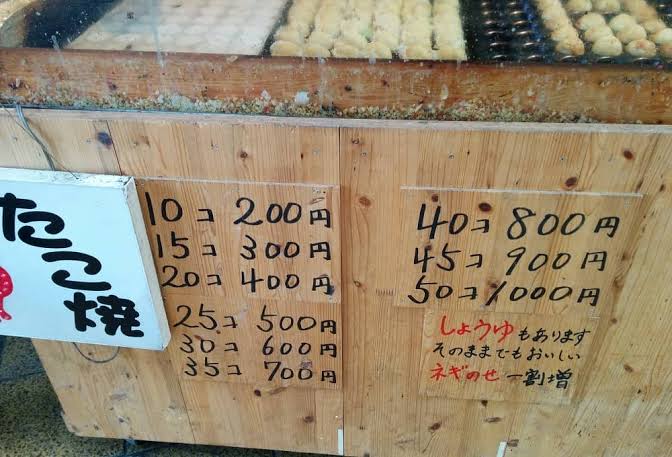 たこ焼
10コ 200円
15コ 300円
20コ 400円
25コ 500円
30コ 600円
35コ 700円
40コ 800円
45コ 900円
50コ 1000円
しょうゆもあります
そのままでもおいしい
ネギのせ 一割増